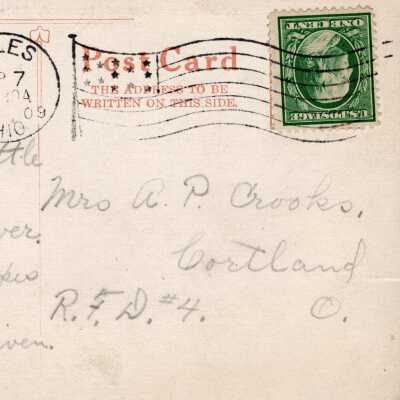 LES
7
09
HIO
Post Card
THE ADDRESS TO BE
WRITTEN ON THIS SIDE.
U.S. POSTAGE
ONE CENT
ttle
ver.
iven.
Mrs A. P. Crooks,
Cortland
R.F.D. #4. O.